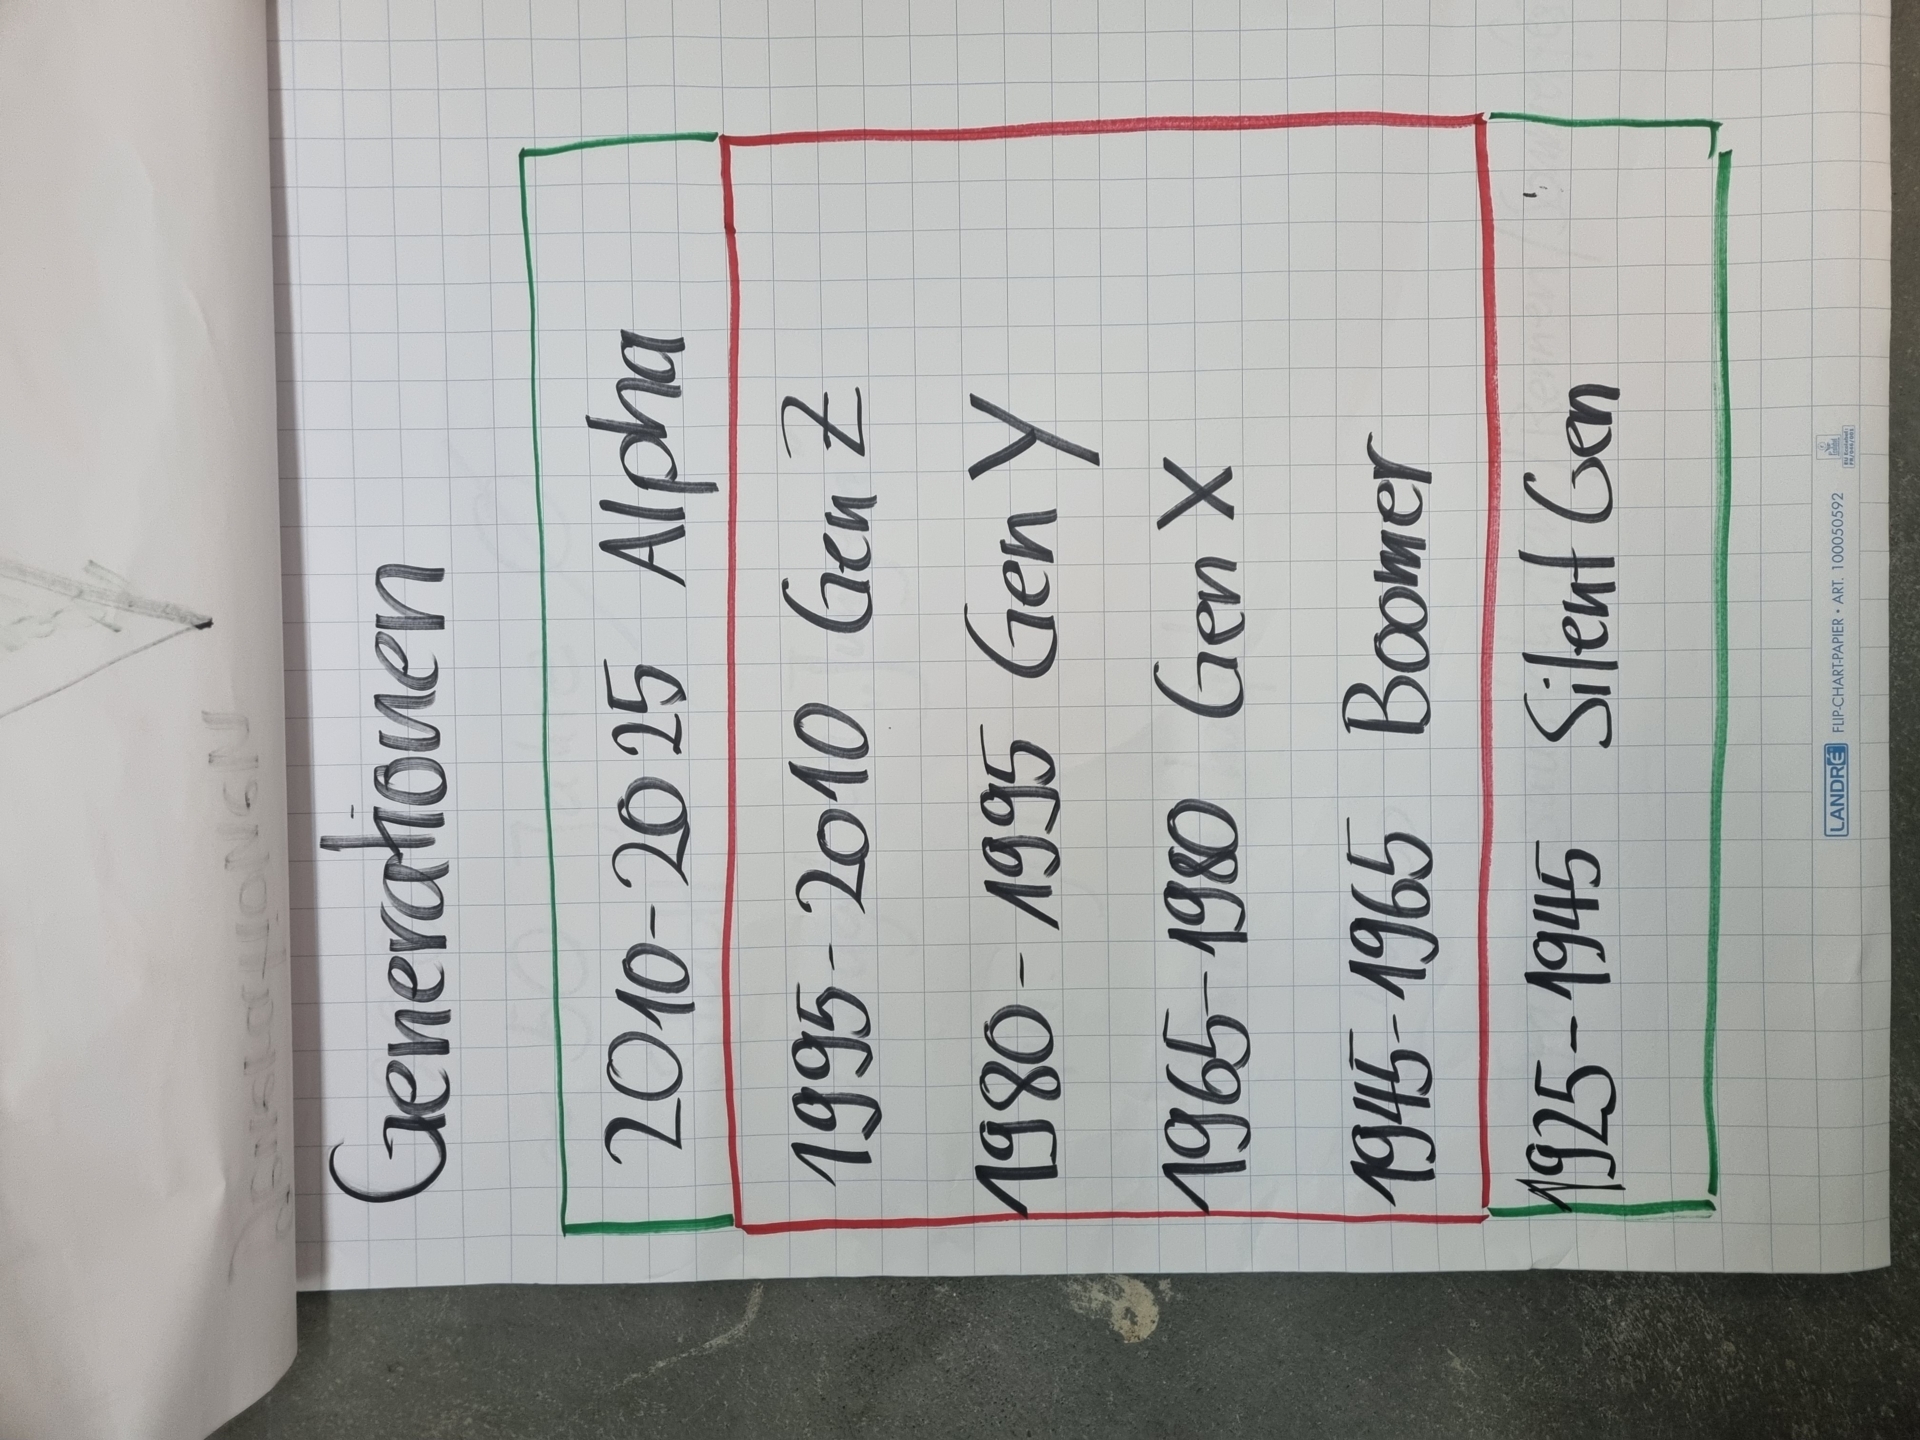 Generationen
2010-2025 Alpha
1995-2010 Gen Z
1980-1995 Gen Y
1965-1980 Gen X
1945-1965 Boomer
1925-1945 Silent Gen
LANDRÉ FLIP-CHART-PAPIER • ART. 100050592